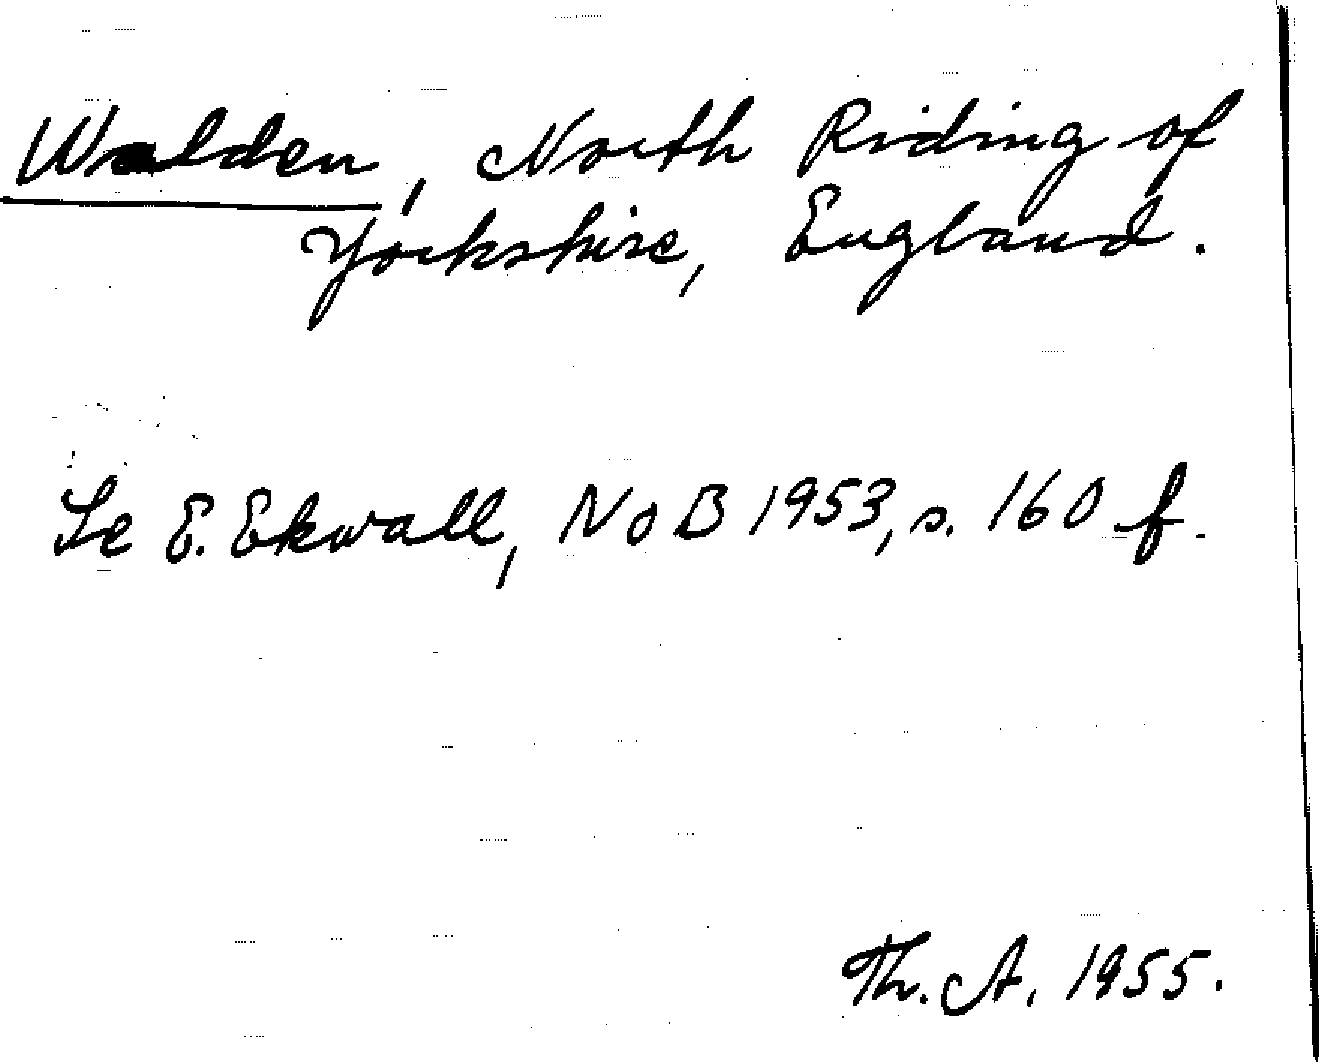 Walden, North Riding of
Yorkshire, England.
Se E. Ekwall, NoB 1953, s. 160 f.
Th. A. 1955.